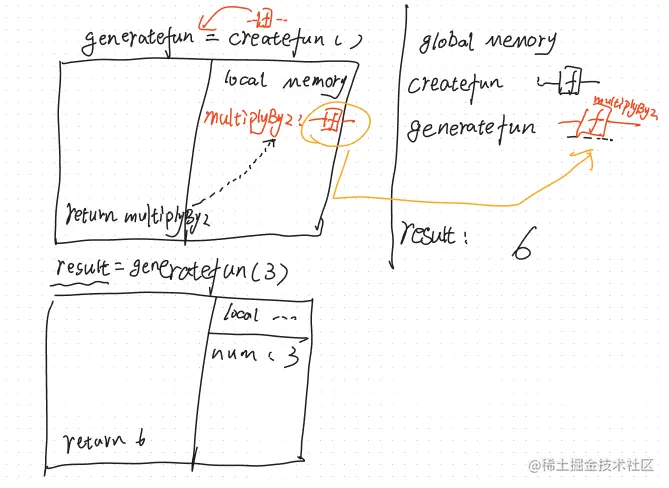 generatefun = createfun()
local memory
multiplyBy2:
return multiplyBy2
global memory
createfun f
generatefun f
multiplyBy2
result: 6
result = generatefun(3)
local ---
num: 3
return 6
@稀土掘金技术社区